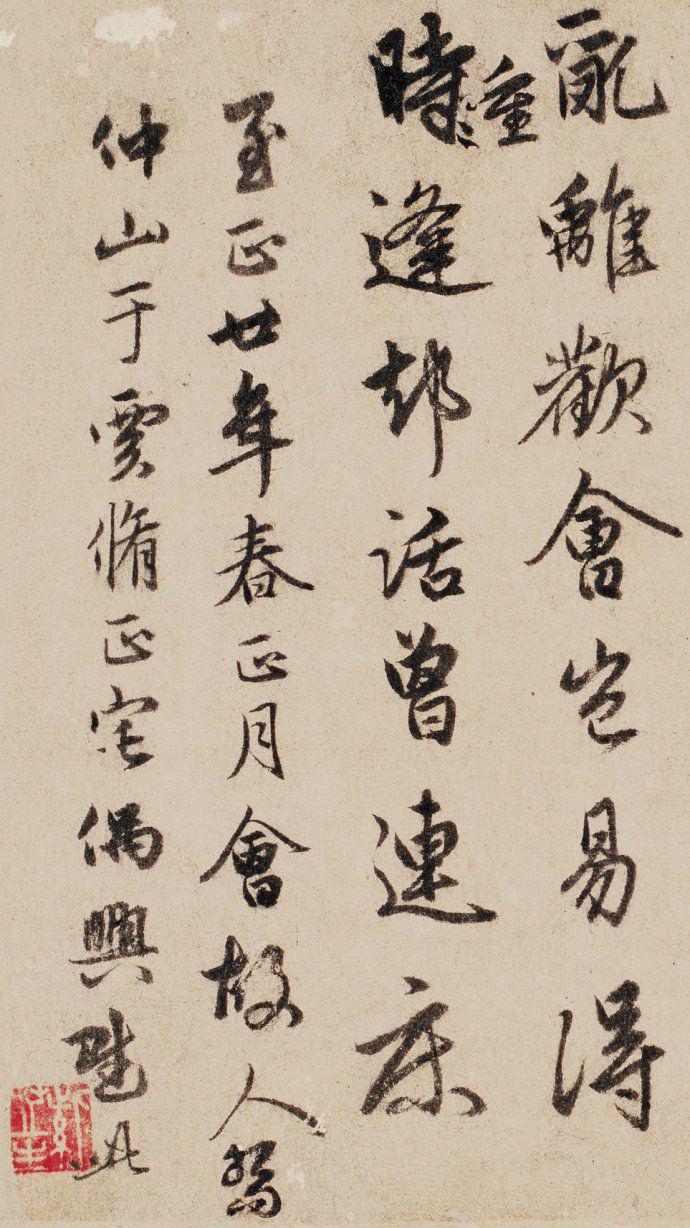 亂離歡會豈易得
時重逢却話曾連床
至正廿年春正月會故人
仲山于賈脩正宅偶興賦此